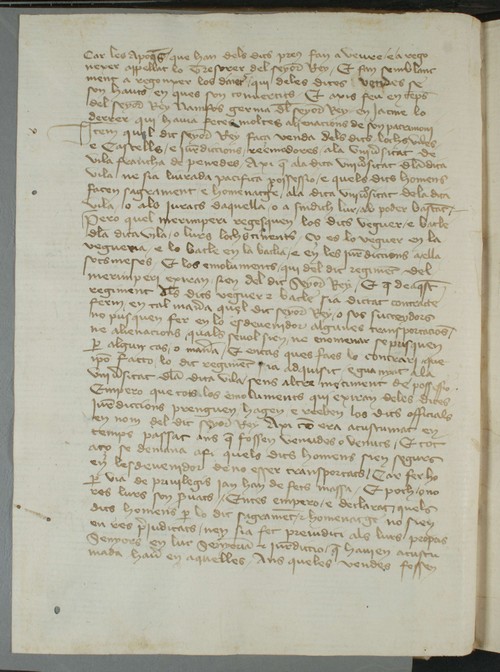 Car les que han dels dits preu fan a veure e a rego
nexer appellat lo Tresorer del senyor Rey Et fan semblant
ment a regonexer los que deles dites vendes se
son hauts en ques son convertits Et axis feu en temps
del senyor Rey Namfos germa del senyor Rey en Jacme lo
derrer qui havia fetes moltes alienacions de son patrimoni
Item quel dit senyor Rey faça venda dels dits lochs viles
e Castells e jurediccions reemedores ala universitat de
vila francha de penedes Axi que ala dita universitat dela dita
vila ne sia liurada pacifica possessio e quels dits homens
facen sagrament e homenatge ala dita universitat dela dita
vila o als jurats daquella o a sindich lur ab poder bastat
Pero quel merimperi regesquen los dits veguer e batle
dela dita vila o lurs lochstinents Ço es lo veguer en la
vegueria e lo batle en la batlia e en les jurediccions aella
sotsmeses Et los emoluments qui del dit regiment del
merimperi exiran sien del dit Senyor Rey Et que deaquest
regiment dels dits veguer e batle sia dictat contracte
ferm en tal manera quel dit senyor Rey o sos succeydors
no pusquen fer en lo esdevenidor algunes transportacions
ne alienacions quals sevol sien ne enomenar se pusquen
per algun cas o manera Et encas ques faes lo contrari que
ipso facto lo dit regiment sia adquisit e guanyat ala
universitat dela dita vila sens altre de possessio
Empero que tots los emoluments qui exiran deles dites
jurediccions prenguen hagen e reeben los dits officials
en nom del dit senyor Rey Axi com era acustumat en
temps passat ans que fossen venudos o venuts Et tot
aço se demana afi quels dits homens sien segurs
en lesdevenidor de no esser transportats Car ferho
per via de privilegis jan han de fets massa Et poch ono
res lurs son Entes empero e declarat quels
dits homens per lo dit sagrament e homenatge no sien
en res prejudicats ney sia fet prejudici als lurs propris
Senyors en lur Senyoria e jurediccio que havien acustu
mada haver en aquelles Ans queles vendes fossen